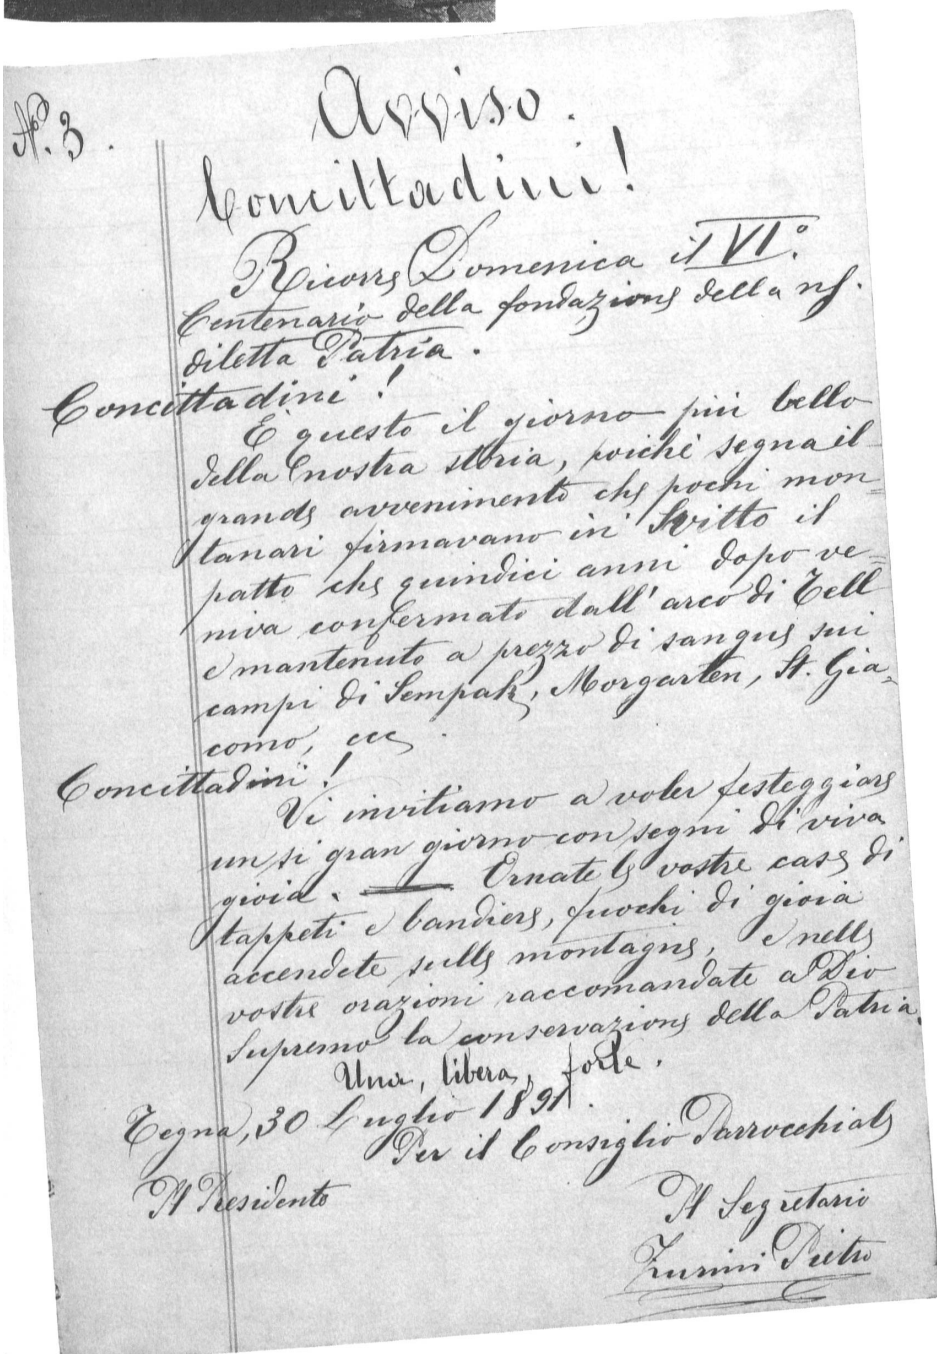 N.º 3.
Avviso.
Concittadini!
Ricorre Domenica il VI.º
Centenario della fondazione della ns.
diletta Patria.
Concittadini!
È questo il giorno più bello
della nostra storia, poichè segna il
grande avvenimento che pochi mon=
tanari firmavano in Svitto il
patto che quindici anni dopo ve=
niva confermato dall'arco di Tell
e mantenuto a prezzo di sangue sui
campi di Sempak, Morgarten, St. Gia=
como, ecc.
Concittadini!
Vi invitiamo a voler festeggiare
un si gran giorno con segni di viva
gioia. — Ornate le vostre case di
tappeti e bandiere, fuochi di gioia
accendete sulle montagne, e nelle
vostre orazioni raccomandate a Dio
Supremo la conservazione della Patria.
Una, libera, forte.
Tegna, 30 Luglio 1891.
Per il Consiglio Parrocchiale
Il Presidente
Il Segretario
Zurini Pietro